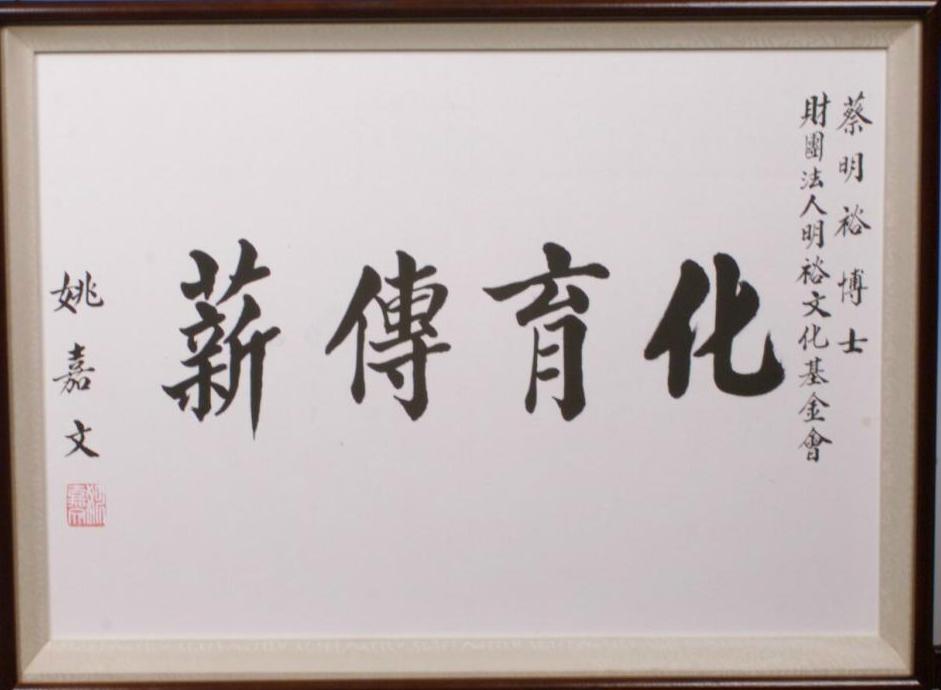 蔡明裕博士
財團法人明裕文化基金會
化育傳薪
姚嘉文